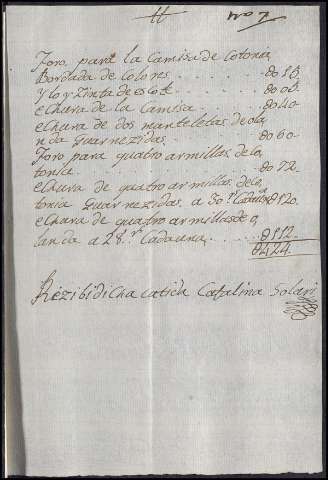 Foro, para la Camisa de Cotonia
Bordada de Colores . . . . . . . . . . 8016
Y lo y zinta de escote . . . . . . . . 8008
echura de la Camisa . . . . . . . 8040
echura de dos manteletas de ola
nda guarnezidas . . . . . . . . . . 8060
Foro para quatro armillas de Co
tonia . . . . . . . . . . 8072
echura de quatro armillas de Co
tonia guarnezidas a 30 rs Cadauna 8120
echura de quatro armillas de o
landa a 28 rs Cadauna . . . . 8112
8424
Rezibi dicha Catida Catalina Solari